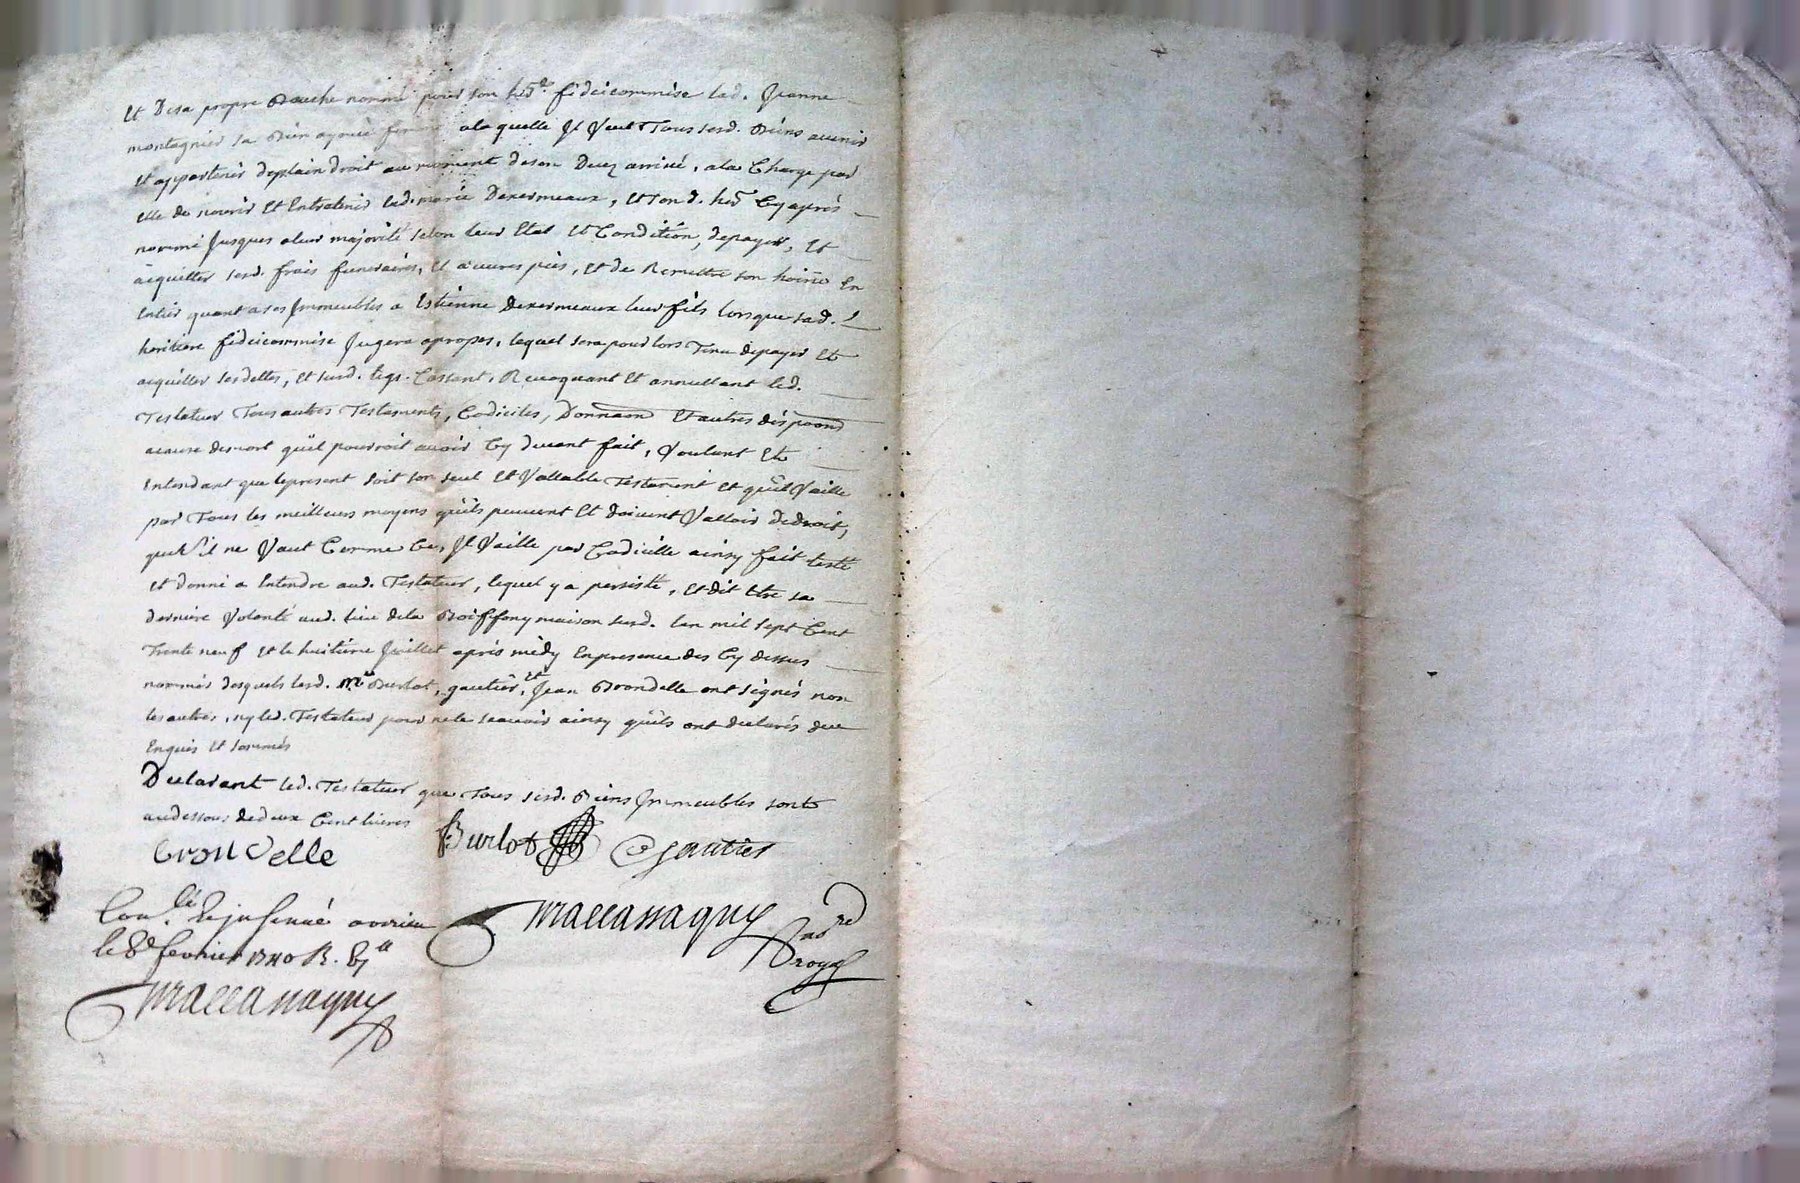 Et De sa propre Bouche nommé pour son her. fideicommise led. Jeanne
montagnier sa Bien aymée femme a la quelle Il Veut Tous sesd. Biens avenir
Et appartenir de plain droit au moment de son Decez arrivé, a la Charge par
elle de nourir Et Entretenir led. marie Dexermeaux, Et son d. her. Cy après
nommé Jusques a leur majorité selon leur Etat Et Condition, de payer, Et
acquitter sesd. frais funeraires, Et œuvres pies, Et de Remettre son hoirie En
Entier quant a ses Immeubles a Estienne Dexermeaux leur fils lorsque sad.
heritiere fideicommise Jugera apropos, lequel sera pour lors Tenu de payer Et
acquitter ses dettes, Et susd. legs. Cassant, Revoquant Et annullant led.
Testateur Tous autres Testaments, Codiciles, Donnaon Et autres dispoons
acause de mort qu'il pourroit avoir Cy devant fait, Voulant Et
Entendant que le present soit son seul Et Vallable Testament Et qu'il Vaille
par Tous les meilleurs moyens qu'ils peuvent Et doivent Valloir de droit,
que s'il ne Vaut Comme Ce, Il Vaille par Codicille ainsy fait testé
Et donné a Entendre aud. Testateur, lequel y a persisté, Et dit Etre sa
derniere Volonté aud. lieu de la Boiffony maison susd. l'an mil sept Cent
Trente neuf Et le huitième Juillet après midy En presence des Cy dessus
nommés desquels lesd. Mre Burlot, gautier, et Jean Brondelle ont signés non
les autres, ny led. Testateur pour ne le scavoir ainsy qu'ils ont declarés de ce
Enquis Et sommés
Declarant led. Testateur que Tous sesd. Biens Immeubles sont
au dessous de deux Cent livres
Brondelle Burlot Gautier
le 8e fevrier 1740 R.
Maccassaguy
Maccassaguy
No.re
royal